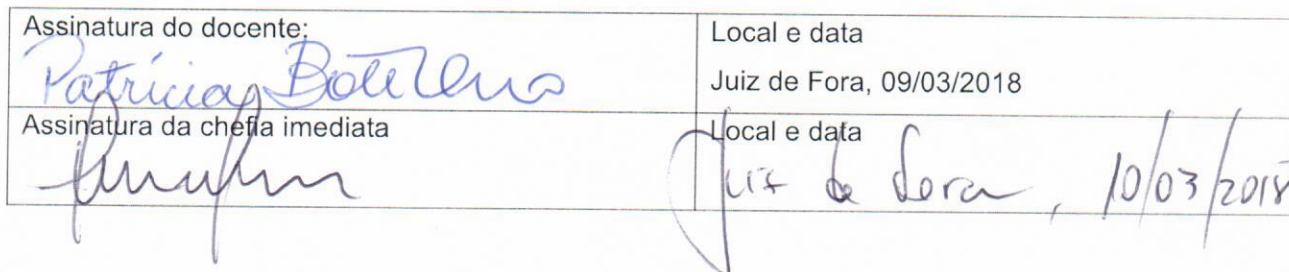 Assinatura do docente:
Patrícia Botelho
Local e data
Juiz de Fora, 09/03/2018
Assinatura da chefia imediata
Local e data
Juiz de Fora, 10/03/2018